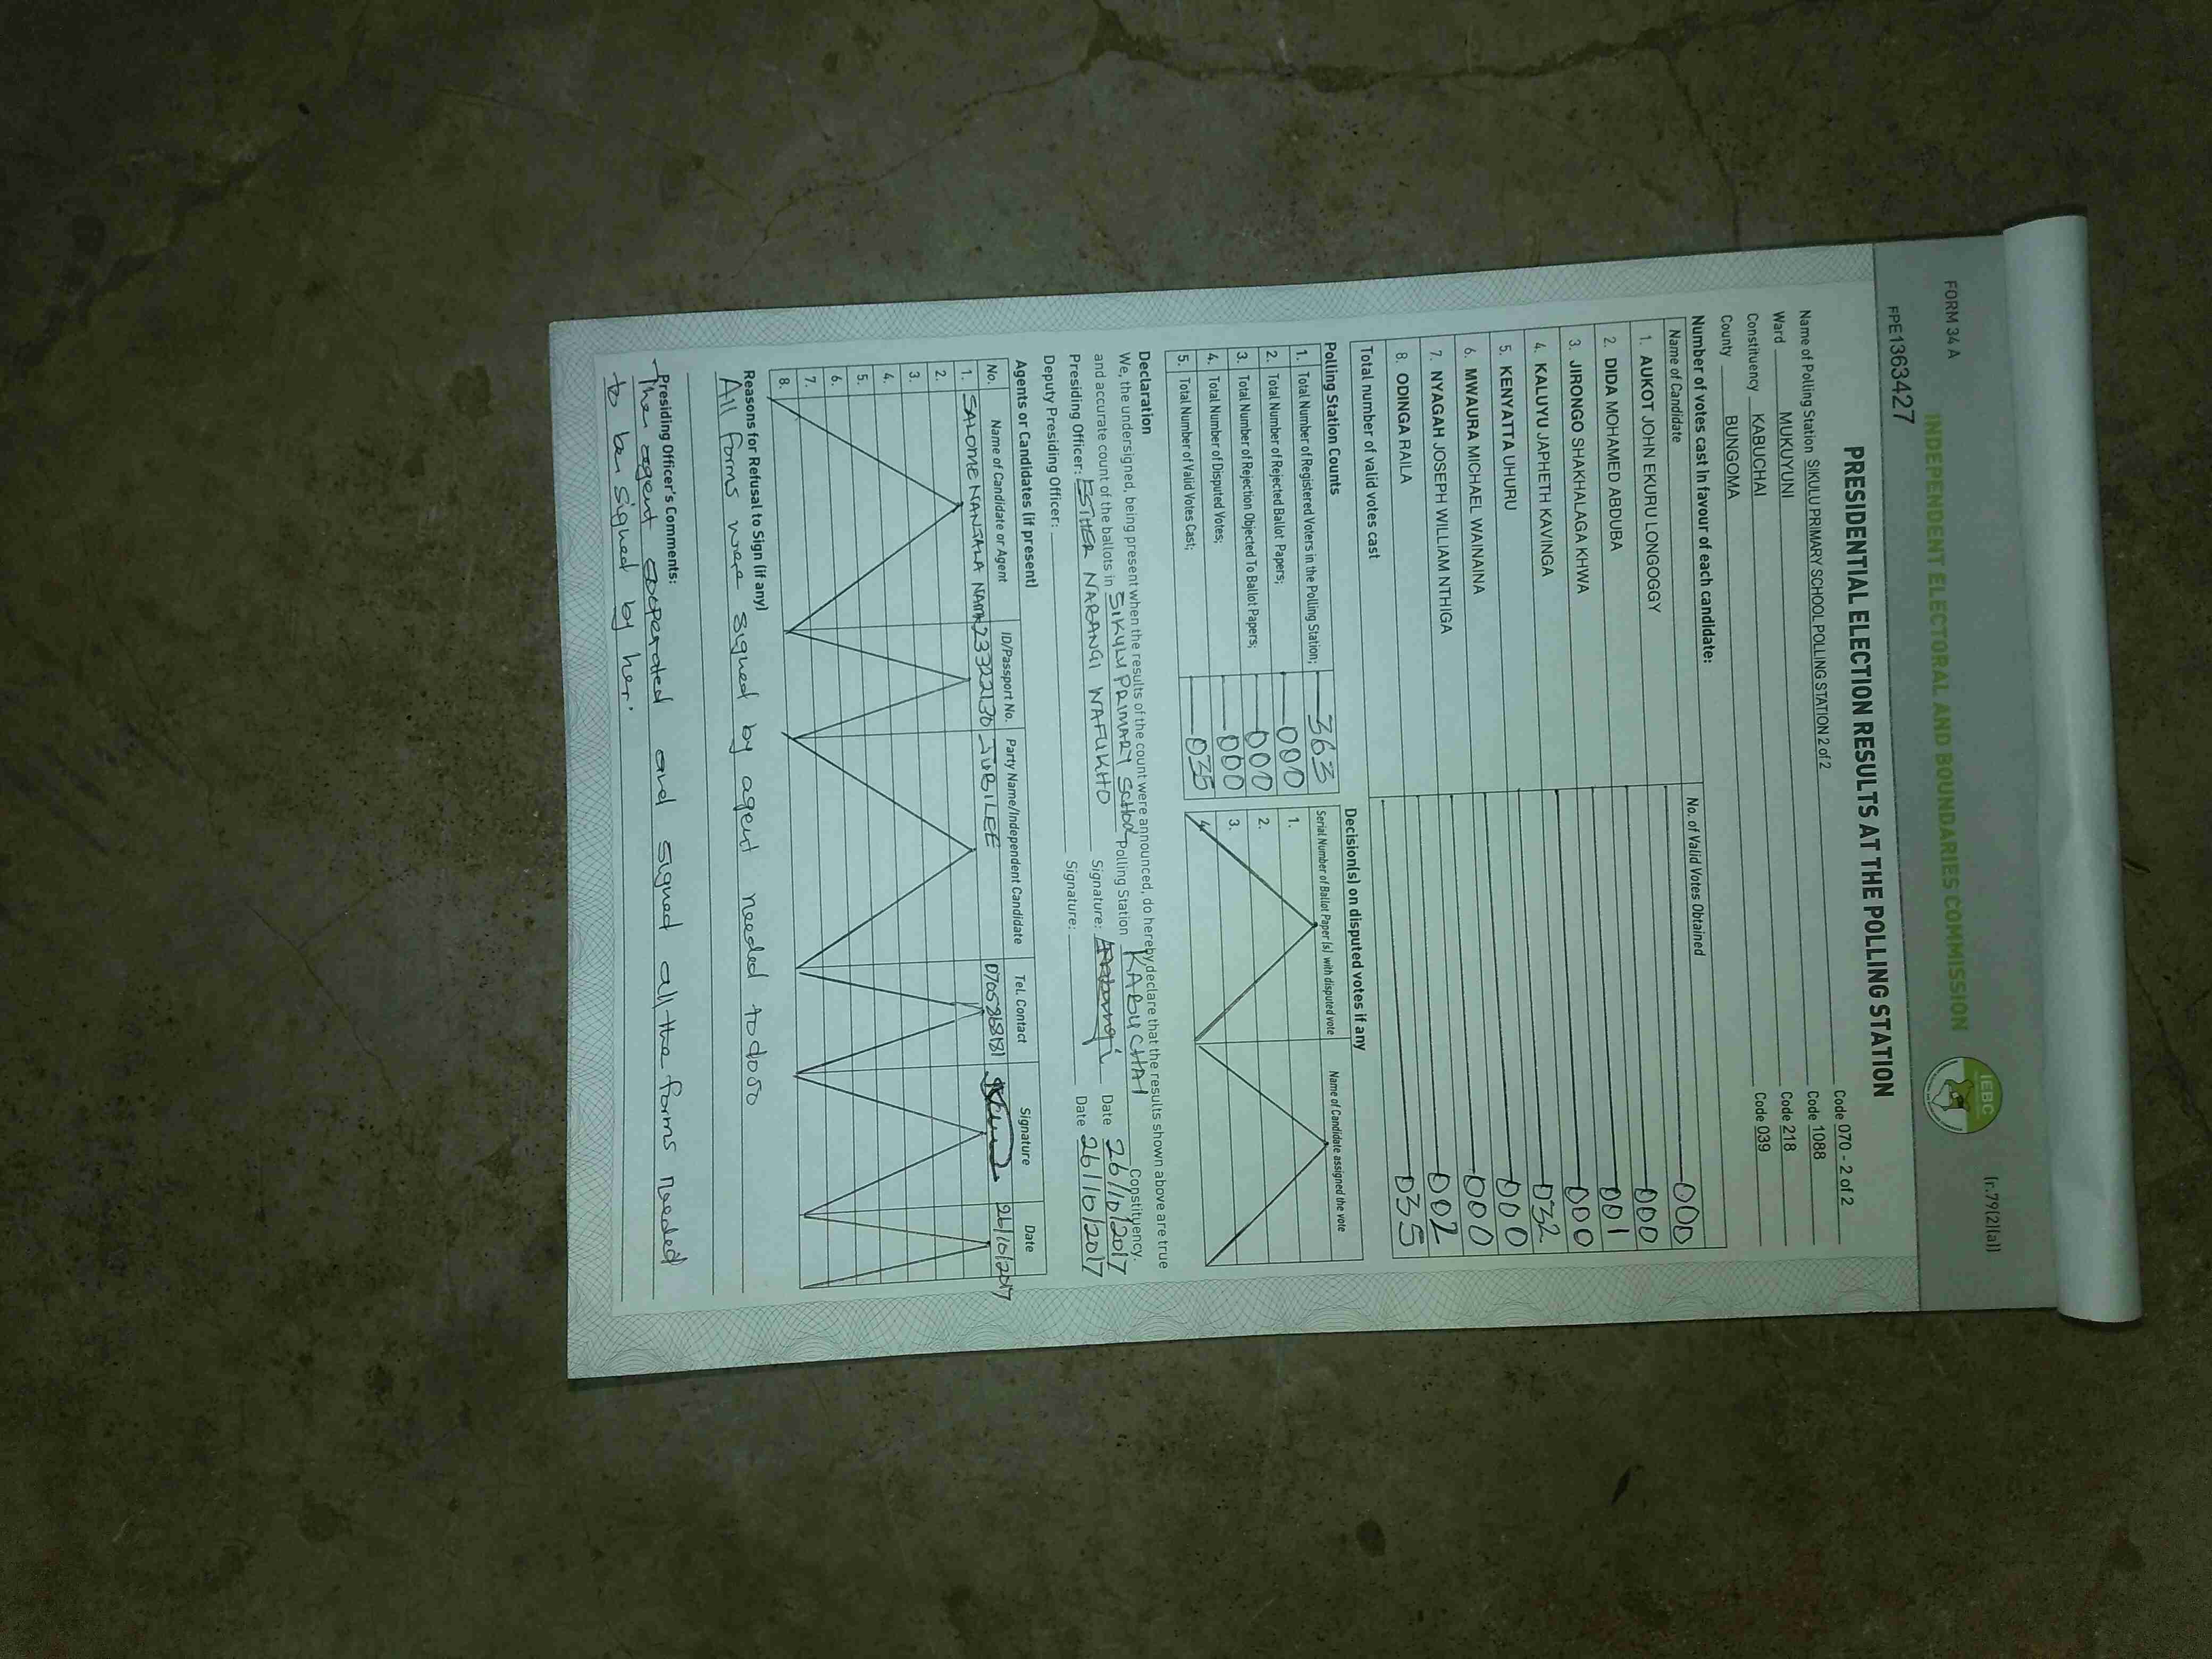 FORM 34A
(r.79(2)(a))
INDEPENDENT ELECTORAL AND BOUNDARIES COMMISSION
IEBC
FPE1363427
PRESIDENTIAL ELECTION RESULTS AT THE POLLING STATION
Name of Polling Station SIKULU PRIMARY SCHOOL POLLING STATION 2 of 2 Code 070 - 2 of 2
Ward MUKUYUNI Code 1088
Constituency KABUCHAI Code 218
County BUNGOMA Code 039
Number of votes cast in favour of each candidate:
Name of Candidate No. of Valid Votes Obtained
1. AUKOT JOHN EKURU LONGOGGY 000
2. DIDA MOHAMED ABDUBA 000
3. JIRONGO SHAKHALAGA KHWA 001
4. KALUYU JAPHETH KAVINGA 000
5. KENYATTA UHURU 032
6. MWAURA MICHAEL WAINAINA 000
7. NYAGAH JOSEPH WILLIAM NTHIGA 000
8. ODINGA RAILA 002
Total number of valid votes cast 035
Polling Station Counts
1. Total Number of Registered Voters in the Polling Station; 363
2. Total Number of Rejected Ballot Papers; 000
3. Total Number of Rejection Objected To Ballot Papers; 000
4. Total Number of Disputed Votes; 000
5. Total Number of Valid Votes Cast; 035
Decision(s) on disputed votes if any
Serial Number of Ballot Paper (s) with disputed vote Name of Candidate assigned the vote
1.
2.
3.
4.
Declaration
We, the undersigned, being present when the results of the count were announced, do hereby declare that the results shown above are true
and accurate count of the ballots in SIKULU PRIMARY SCHOOL Polling Station KABUCHAI Constituency.
Presiding Officer: ESTHER NARANGI WAFUKHO Signature: Date 26/10/2017
Deputy Presiding Officer: Signature: Date 26/10/2017
Agents or Candidates (if present)
No. Name of Candidate or Agent ID/Passport No. Party Name/Independent Candidate Tel. Contact Signature Date
1. SALOME NANJALA 23322130 JUBILEE 26/10/2017
2.
3.
4.
5.
6.
7.
8.
Reasons for Refusal to Sign (if any)
All forms were signed by agent needed to do so
Presiding Officer's Comments:
The agent and signed all the forms needed
to be signed by her.